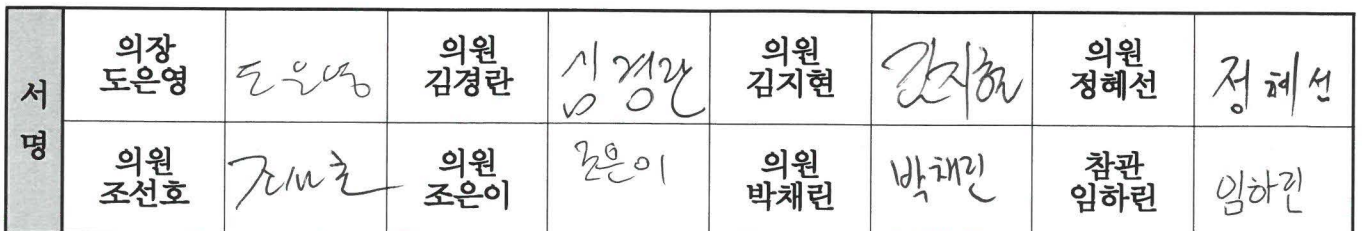 서명
의장
도은영
도은영
의원
김경란
김경란
의원
김지현
김지현
의원
정혜선
정혜선
의원
조선호
조선호
의원
조은이
조은이
의원
박채린
박채린
참관
임하린
임하린